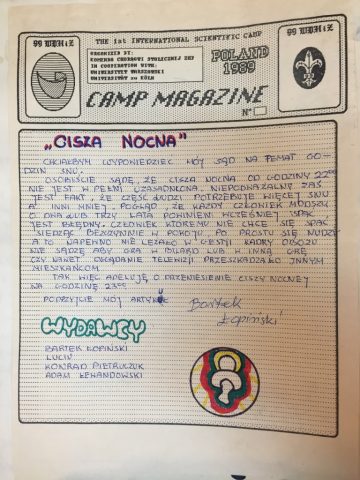 THE 1st INTERNATIONAL SCIENTIFIC CAMP
ORGANIZED BY:
KOMENDA CHORĄGWI STOŁECZNEJ ZHP
IN COOPERATION WITH:
UNIWERSYTET WARSZAWSKI
UNIVERSITÄT zu KÖLN
POLAND
1989
CAMP MAGAZINE
N°
„CISZA NOCNA"
CHCIAŁBYM WYPOWIEDZIEĆ MÓJ SĄD NA TEMAT GO-
DZIN SNU.
OSOBIŚCIE SĄDZĘ, ŻE CISZA NOCNA OD GODZINY 22 00
NIE JEST W PEŁNI UZASADNIONA. NIEPODWAŻALNY ZAŚ
JEST FAKT, ŻE CZĘŚĆ LUDZI POTRZEBUJE WIĘCEJ SNU
A INNI MNIEJ. POGLĄD, ŻE KAŻDY CZŁOWIEK MŁODSZY
O DWA LUB TRZY LATA POWINIEN WCZEŚNIEJ SPAĆ
JEST BŁĘDNY. CZŁOWIEK KTÓREMU NIE CHCE SIĘ SPAĆ
SIEDZĄC BEZCZYNNIE W POKOJU PO PROSTU SIĘ NUDZI
A TO NAPEWNO NIE LEŻAŁO W GESTII KADRY OBOZU
NIE SĄDZĘ ABY GRA W BILARD LUB W INNĄ GRĘ
CZY NAWET OGLĄDANIE TELEWIZJI PRZESZKADZAŁO INNYM
MIESZKAŃCOM.
TAK WIĘC APELUJĘ O PRZENIESIENIE CISZY NOCNEJ
NA GODZINĘ 23 00
MÓJ ARTYKUŁ
Bartek
Łopiński
WYDAWCY
BARTEK ŁOPIŃSKI
LUCIN
KONRAD PIETRUCZUK
ADAM LEWANDOWSKI